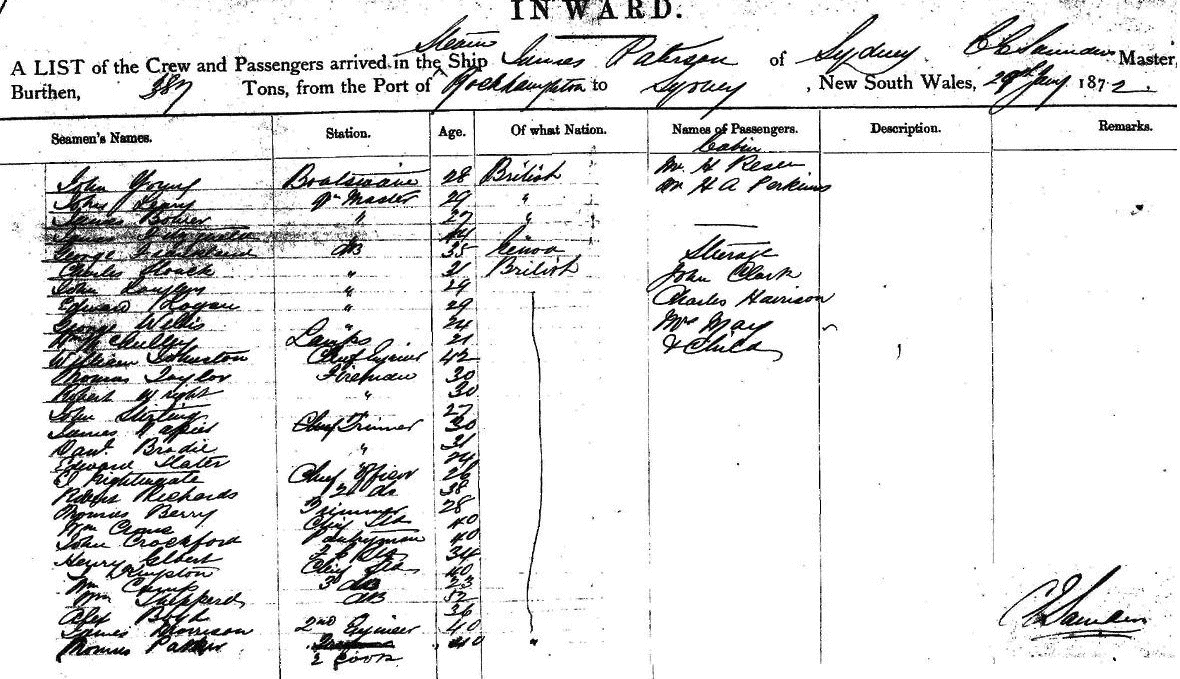 INWARD.
Steam
A LIST of the Crew and Passengers arrived in the Ship James Paterson of Sydney C E Saunders Master,
Burthen, 387 Tons, from the Port of Rockhampton to Sydney , New South Wales, 29th Jany 1872.
Seamen's Names. Station. Age. Of what Nation. Names of Passengers. Description. Remarks.
Cabin
John Young Boatswain 28 British Mr H
James Master 29 " Mr H A Perkins
James " 27 "
James 44
George AB 35 Steerage
Charles " 21 British John Clark
John " 29 Charles Harrison
Edward Hogan " 29 Mrs May
George Willis " 24 & Child
Lamps 21
William Johnston Chief 42
Thomas Taylor Fireman 30
Robert Wright " 30
John Stirling 27
James Napier Chief Trimmer 30
Danl. Brodie " 31
Edward Slater 24
E Nightingale Chief Officer 26
Robert Richards 2 do 38
Thomas Berry Trimmer 28
Wm Crane Chief 40
John Crockford Pantryman 40
Henry Elbert 34
Chief 40
Wm Camp 3 23
Wm Shepperd AB 52
Alex 36
James Morrison 2nd Engineer 40
Thomas 40 "
2 Cook
C E Saunders